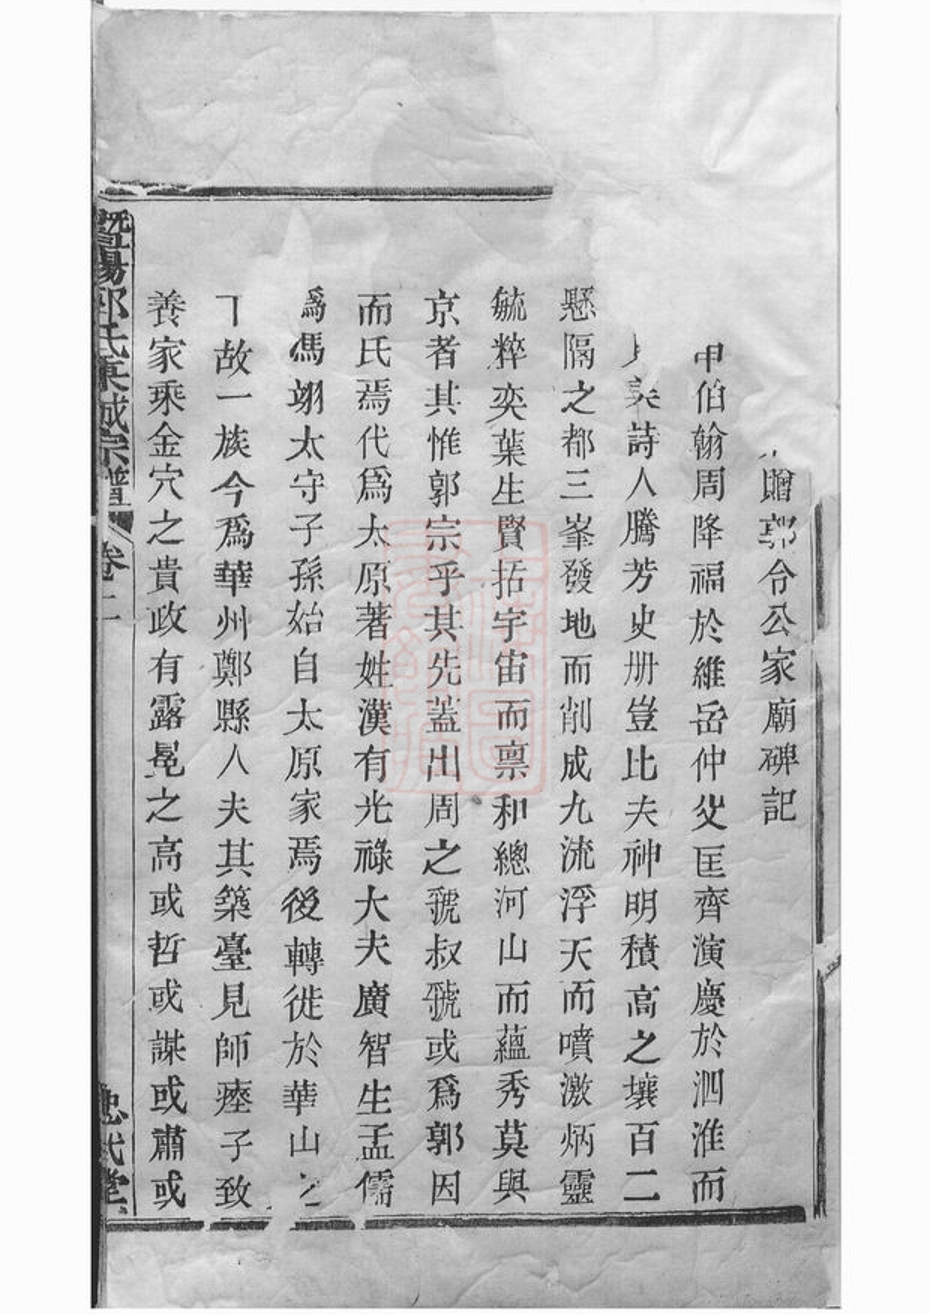 贈郭令公家廟碑記
申伯翰周降福於維岳仲父匡齊演慶於泗淮而
美詩人騰芳史册豈比夫神明積高之壤百二
懸隔之都三峯發地而削成九流浮天而噴激炳靈
毓粹奕葉生賢括宇宙而禀和總河山而蘊秀莫與
京者其惟郭宗乎其先蓋出周之虢叔虢或爲郭因
而氏焉代爲太原著姓漢有光祿大夫廣智生孟儒
爲馮翊太守子孫始自太原家焉後轉徙於華山之
故一族今爲華州鄭縣人夫其築臺見師瘞子致
養家乘金穴之貴政有露冕之高或哲或謀或肅或
暨陽郭氏東城宗譜 卷二 忠武堂